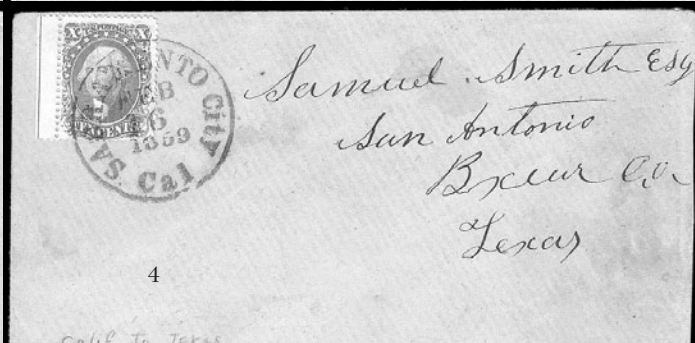 U.S. POSTAGE
X X
TEN CENTS
SACRAMENTO City
FEB
6
1859
Cal
Samuel Smith Esq
San Antonio
Bexar Co.
Texas
4
Calif to Texas